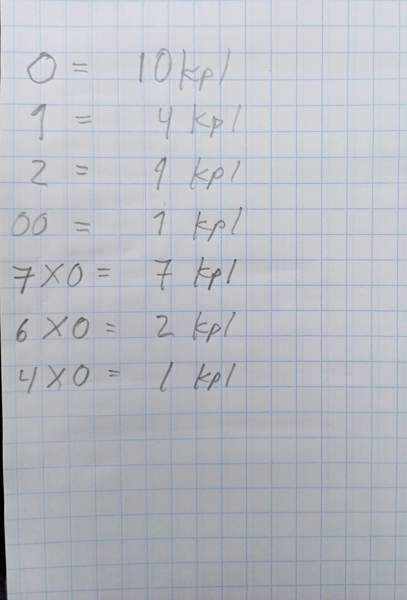 0 = 10 kpl
1 = 4 kpl
2 = 1 kpl
00 = 1 kpl
7 X 0 = 7 kpl
6 X 0 = 2 kpl
4 X 0 = 1 kpl